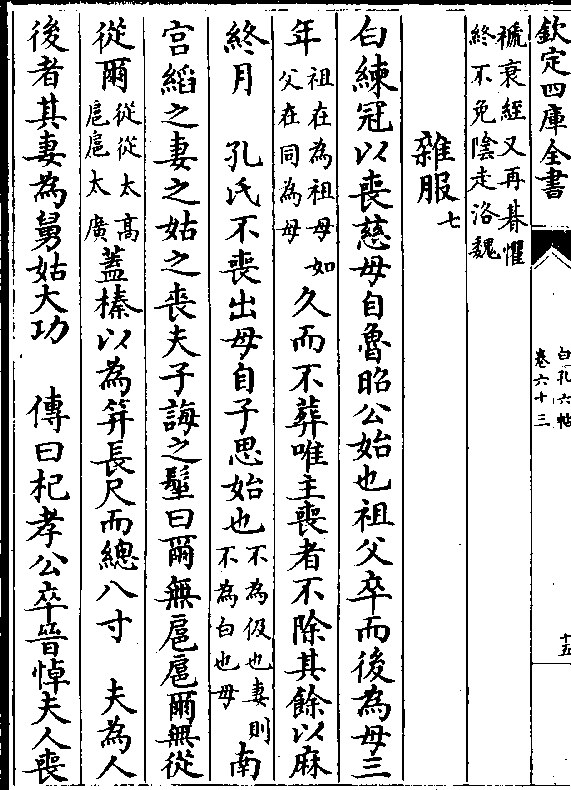 欽定四庫全書
白孔六帖
卷六十三
十五
褫衰絰又再朞懼
終不免陰走洛魏
雜服七
白練冠以喪慈母自魯昭公始也祖父卒而後為母三
年祖在為祖母如父在同為母久而不葬唯主喪者不除其餘以麻
終月 孔氏不喪出母自子思始也不為伋也妻則不為白也母南
宮縚之妻之姑之喪夫子誨之髽曰爾無扈扈爾無從
從爾從從太高扈扈太廣蓋榛以為笄長尺而總八寸 夫為人
後者其妻為舅姑大功 傳曰杞孝公卒晉悼夫人喪